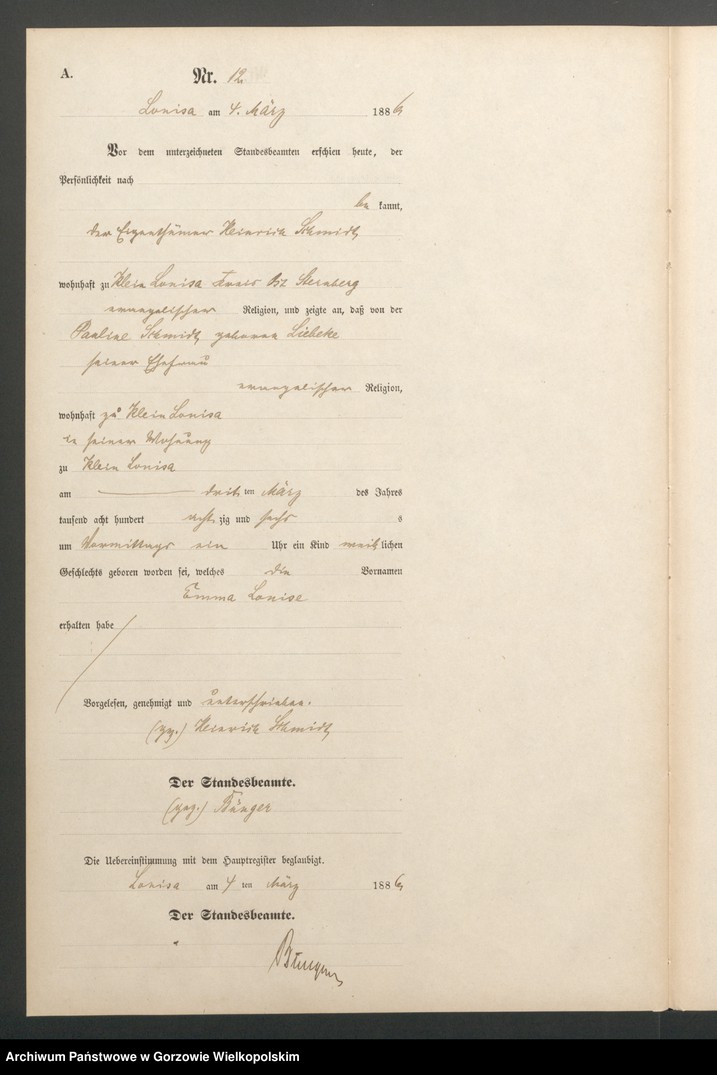 A.
Nr. 12
Lonisa am 4. März 1886
Vor dem unterzeichneten Standesbeamten erschien heute, der
Persönlichkeit nach
be kannt,
der Eigenthümer Heinrich Schmidt,
wohnhaft zu Klein Lonisa Kreis Ost Sternberg
evangelischer Religion, und zeigte an, daß von der
Pauline Schmidt, geborene Liebeke
seiner Ehefrau
evangelischer Religion,
wohnhaft zu Klein Lonisa
in seiner Wohnung
zu Klein Lonisa
am drit ten März des Jahres
tausend acht hundert acht zig und sechs s
um Vormittags ein Uhr ein Kind weib lichen
Geschlechts geboren worden sei, welches die Vornamen
Emma Louise
erhalten habe
Vorgelesen, genehmigt und unterschrieben.
(gz.) Heinrich Schmidt,
Der Standesbeamte.
(gez.) Bünger
Die Uebereinstimmung mit dem Hauptregister beglaubigt.
Lonisa am 4 ten März 1886
Der Standesbeamte.
Bünger
Archiwum Państwowe w Gorzowie Wielkopolskim